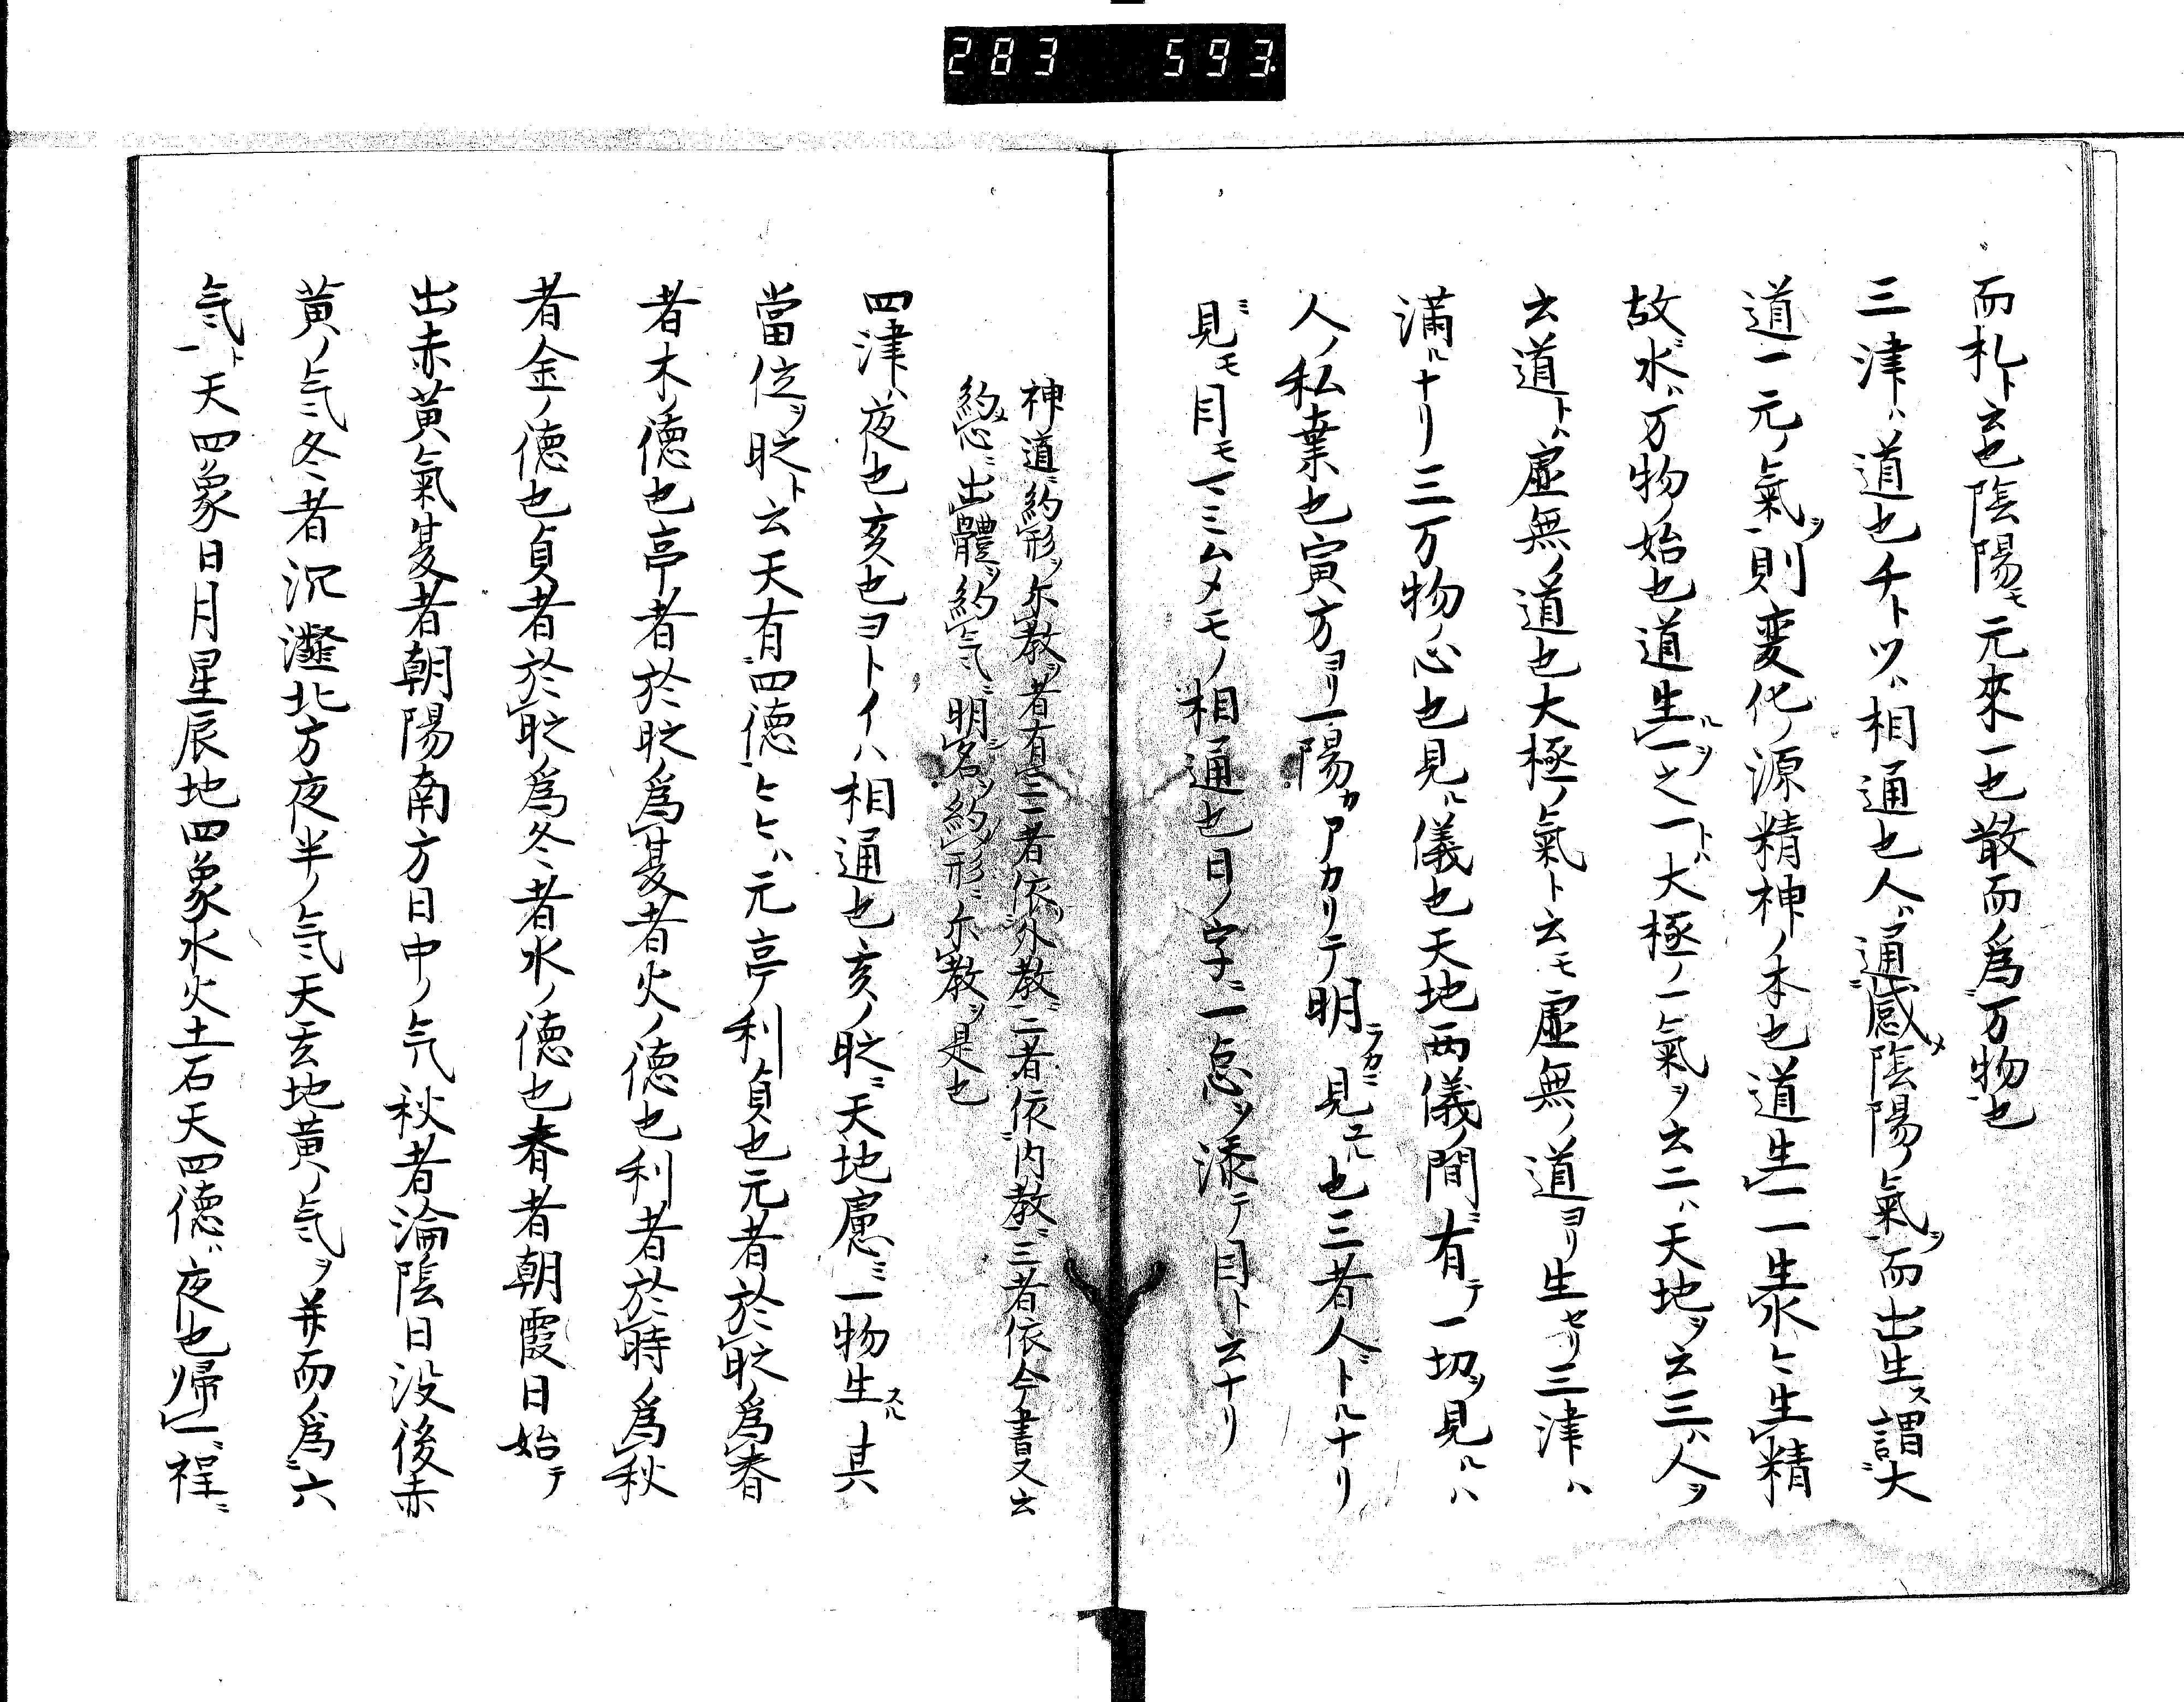 283 593
而札ト云也陰陽モ元来一也散而為万物也
三津ハ道也チトツハ相通也人ハ通感メ陰陽ノ氣ヲ而出生ス謂大
道一元ノ氣ヲ則変化ノ源精神ノ本也道生一一生水々生精
故ニ水ハ万物ノ始也道生ルヲ一之一トハ大極ノ一氣ヲ云二ハ天地ヲ云三ハ人ヲ
云道トハ虚無ノ道也大極ノ氣ト云モ虚無ノ道ヨリ生セリ三津ハ
満ルナリ三万物ノ心也見ルハ儀也天地両儀ノ間ニ有テ一切ヲ見ルハ
人ノ私業也寅方ヨリ一陽カアカリテ明ラカニ見エル也三者人トルナリ
見モ目モマミムメモノ相通也日ノ字ニ一点ヲ添テ目ト云ナリ
神道ニ約形ヲ尓教ヲ者有三一者依外教ニ二者依内教ニ三者依今書又云
約心ニ出體ヲ約気ニ明名ヲ約形ニ尓教ヲ是也
四津ハ夜也亥也ヨトイハ相通也亥ノ時ニ天地慮ニ一物生スル其
當位ヲ時ト云天有四徳々々ハ元亨利貞也元者於時為春
者木ノ徳也亨者於時為夏者火ノ徳也利者於時為秋
者金ノ徳也貞者於時為冬々者水ノ徳也春者朝霞日始テ
出赤黄氣夏者朝陽南方日中ノ气秋者淪陰日没後赤
黄ノ気冬者沉瀣北方夜半ノ気天玄地黄ノ気ヲ并而為六
気ト天四象日月星辰地四象水火土石天四徳ハ夜也帰一程ニ